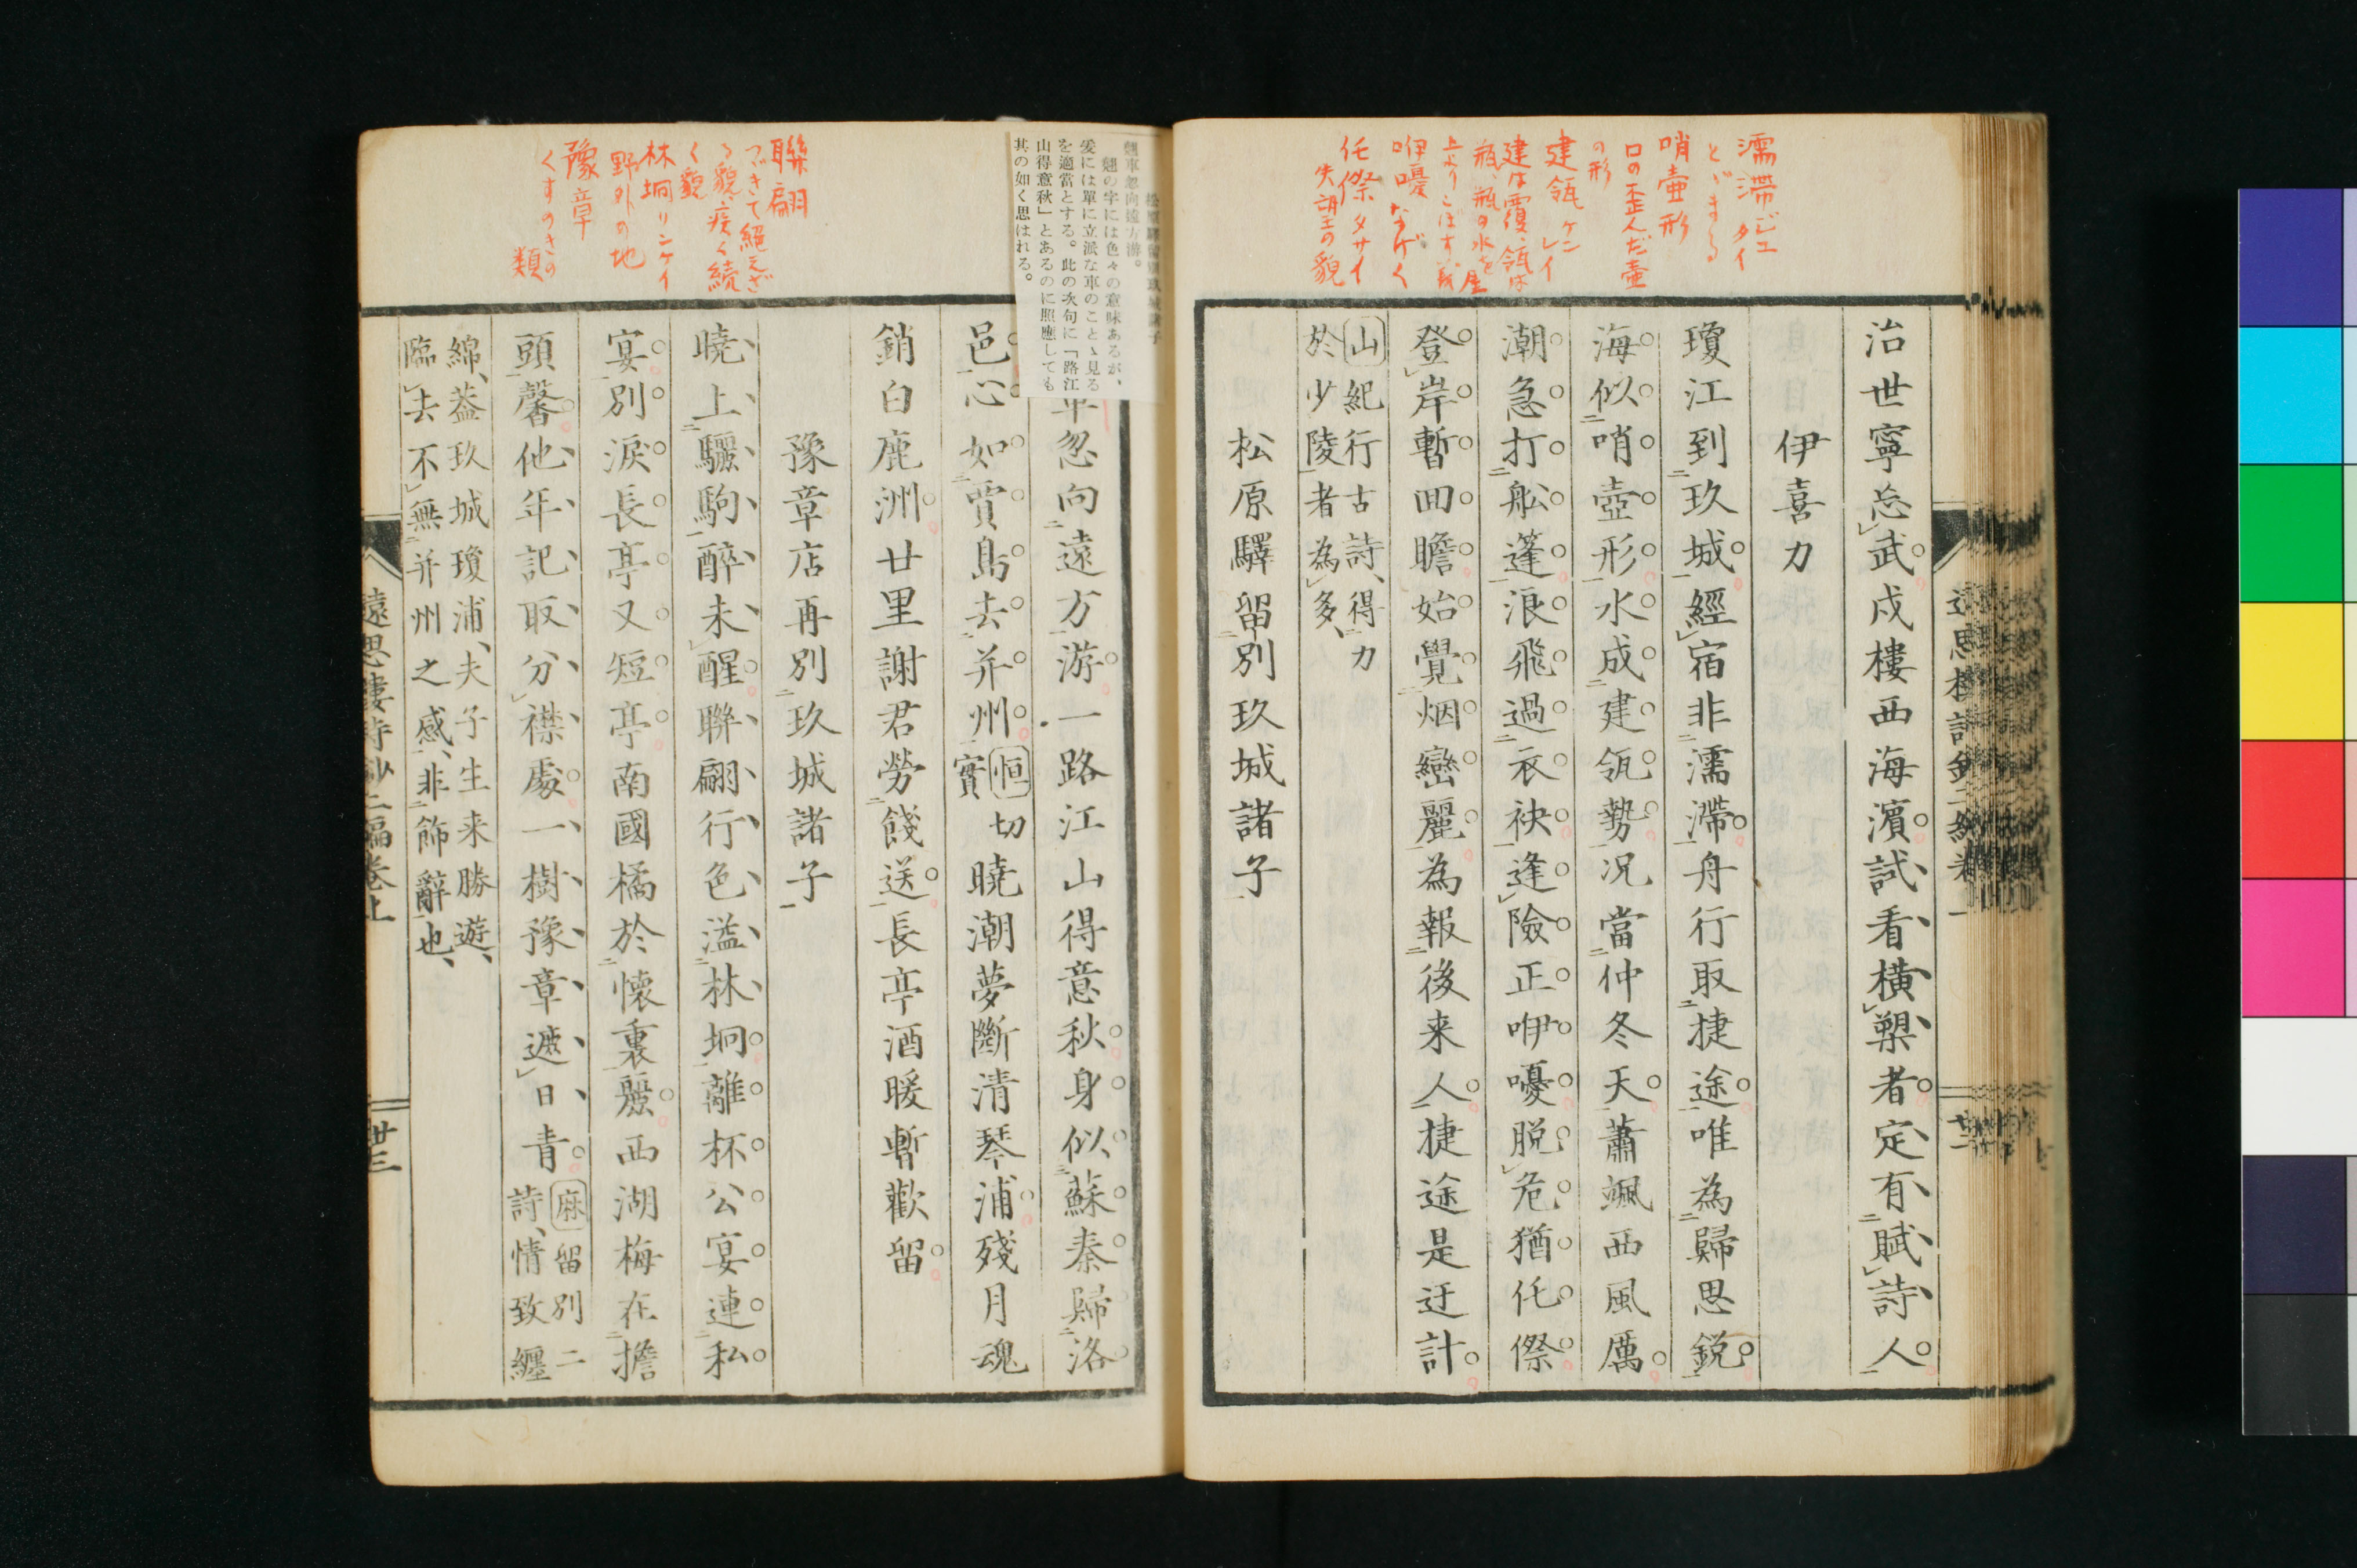 濡滞 ジユタイ
とゞまる
哨壷形
口の歪んだ壷
の形
建瓴 ケンレイ
建は覆、瓴は
瓶、瓶の水を屋
上よりこぼす義
咿嚘 なげく
侘傺 タサイ
失望の貌
治世寧忘武戍樓西海濱試看横槊者定有賦詩人
伊喜力
瓊江到玖城經宿非濡滯舟行取捷途唯為歸思鋭
海似哨壺形水成建瓴勢况當仲冬天蕭颯西風厲
潮急打舩篷浪飛過衣袂逢險正咿嚘脱危猶侘傺
登岸暫回瞻始覺烟巒麗為報後来人捷途是迂計
山紀行古詩、得力
於少陵者為多、
松原驛留別玖城諸子
松原驛留別玖城諸子
翹車忽向遠方游。
翹の字には色々の意味あるが、
爰には單に立派な車のことゝ見る
を適當とする。此の次句に「路江
山得意秋」とあるのに照應しても
其の如く思はれる。
聯翩
つゞきて絕えざ
る貌、疾く続
く貌
林坰 リンケイ
野外の地
豫章
くすのきの
類
車忽向遠方游一路江山得意秋身似蘇秦歸洛
邑心如賈島去并州恒切
實曉潮夢斷清琴浦殘月魂
銷白鹿洲廿里謝君勞餞送長亭酒暖暫歡留
豫章店再別玖城諸子
曉上驪駒醉未醒聯翩行色溢林坰離杯公宴連私
宴別淚長亭又短亭南國橘於懷裏蘦西湖梅在擔
頭馨他年記取分襟處一樹豫章遮日青麻留別二
詩、情致纒
綿、蓋玖城瓊浦、夫子生来勝遊、
臨去不無并州之感、非飾辭也、
遠思樓詩鈔二編卷上
廿三